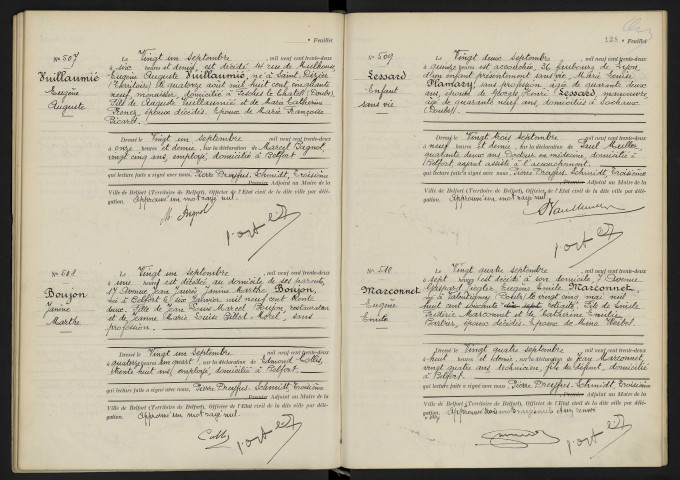 N° 507
Vuillaumié
Eugène
Auguste
Le Vingt un Septembre mil neuf cent trente-deux
à six heures et demie, est décédé, 14 rue de Mulhouse,
Eugène Auguste Vuillaumié, né à Saint-Dizier
(Territoire) le quatorze août mil huit cent
neuf, domicilié à Fesches le Châtel (Doubs)
Fils de Auguste Vuillaumié et de Marie Catherine
époux décédés. Epoux de Marie Françoise
Picard.
Dressé le Vingt un septembre mil neuf cent trente-deux
à onze heures et demie, sur la déclaration de Marcel Bignol,
vingt cinq ans, employé, domicilié à Belfort
qui lecture faite a signé avec nous, Pierre Dreyfus-Schmidt, Troisième
Premier Adjoint au Maire de la
Ville de Belfort (Territoire de Belfort), Officier de l'Etat civil de la dite ville par délé-
gation. Approuvé un mot rayé nul.
N° 508
Boujon
Janine
Marthe
Le Vingt un septembre mil neuf cent trente-deux
à une heure est décédée au domicile de ses parents,
Avenue Jean Jaurès Janine Marthe Boujon,
née à Belfort le six Janvier mil neuf cent trente
deux. Fille de Jean Louis Marcel Boujon, restaurateur
et de Jeanne Marie Louise Morel, sans
profession.
Dressé le Vingt un Septembre mil neuf cent trente-deux
à quatorze heures un quart, sur la déclaration de Edmond
trente huit ans, employé, domicilié à Belfort
qui lecture faite a signé avec nous, Pierre Dreyfus-Schmidt, Troisième
Premier Adjoint au Maire de la
Ville de Belfort (Territoire de Belfort), Officier de l'Etat civil de la dite ville par délé-
gation. Approuvé un mot rayé nul.
128 Feuillet
N° 509
Lessard
Enfant
sans vie
Le Vingt deux septembre mil neuf cent trente-deux
à quinze heures est accouchée, 36 faubourg de Lyon,
d'un enfant présentement sans vie, Marie Louise
Plantazy, sans profession, âgée de quarante deux
ans, épouse de Henri Lessard, manœuvre,
âgé de quarante neuf ans, domiciliés à Sochaux
(Doubs)
Dressé le Vingt trois septembre mil neuf cent trente-deux
à neuf heures et demie, sur la déclaration de Paul Mueller,
quarante deux ans Docteur en médecine, domicilié à
Belfort, ayant assisté à l'accouchement
qui lecture faite a signé avec nous, Pierre Dreyfus-Schmidt, Troisième
Premier Adjoint au Maire de la
Ville de Belfort (Territoire de Belfort), Officier de l'Etat civil de la dite ville par délé-
gation. Approuvé un mot rayé nul
N° 510
Marconnet
Eugène
Emile
Le Vingt quatre septembre mil neuf cent trente-deux
à sept heures est décédé à son domicile, 7 Avenue
Gaspard Ziegler Eugène Emile Marconnet,
né à Valentigney (Doubs) le vingt cinq mai mil
huit cent soixante retraité, Fils de Emile
Frédéric Marconnet et de Catherine Emilie
époux décédés Epoux de Maria
Dressé le Vingt quatre septembre mil neuf cent trente-deux
à huit heures et demie, sur la déclaration de Jean Marconnet,
vingt quatre ans technicien, fils du défunt, domicilié
à Belfort
qui lecture faite a signé avec nous, Pierre Dreyfus-Schmidt, Troisième
Premier Adjoint au Maire de la
Ville de Belfort (Territoire de Belfort), Officier de l'Etat civil de la dite ville par délé-
gation. Approuvé